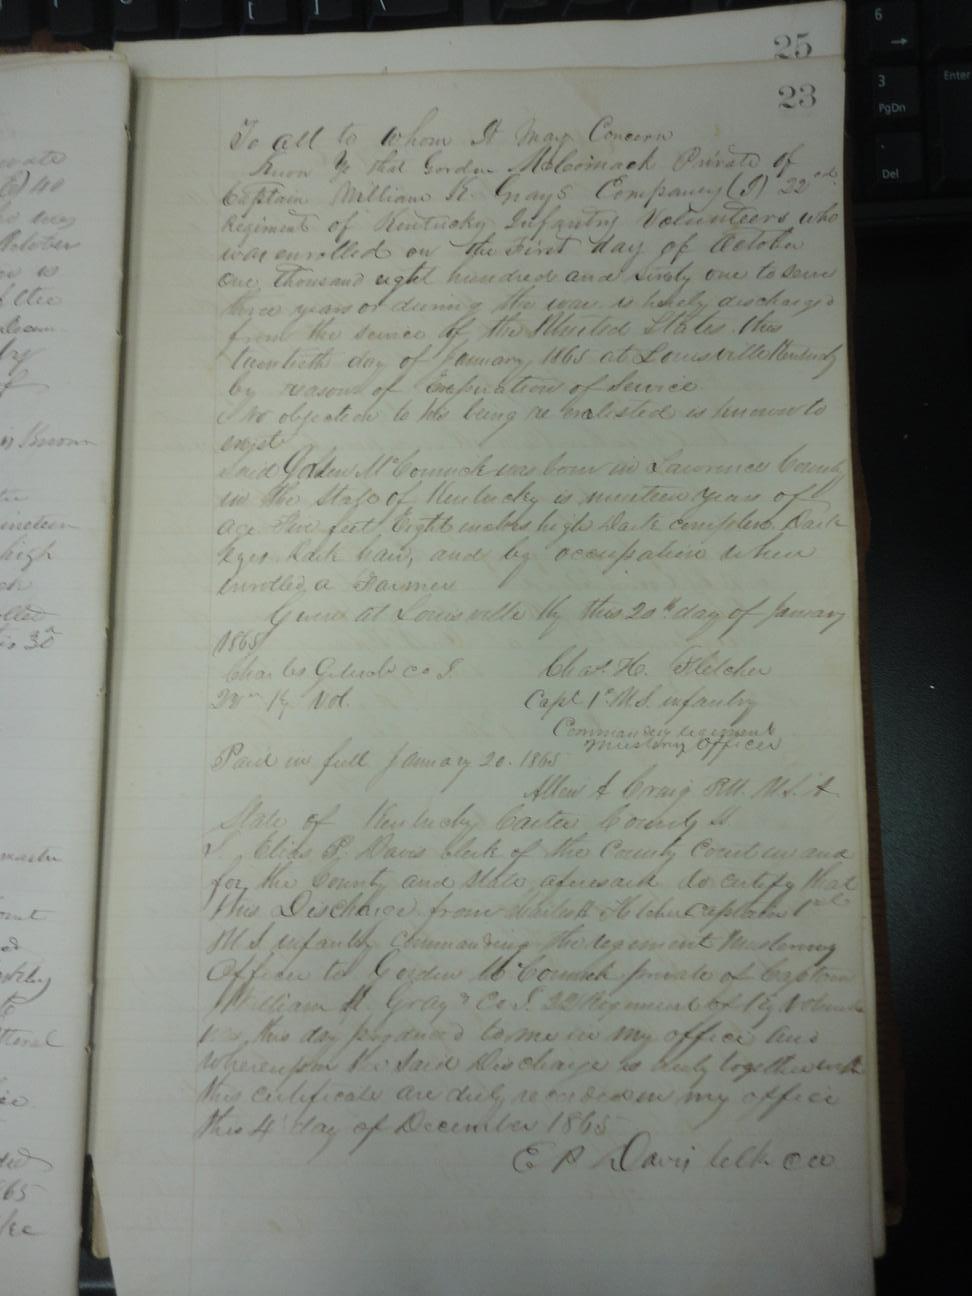 25
23
To all to whom It May Concern
Know Ye that Gorden McCormack Private of
Captain William H. Grays Company (I) 22nd
Regiment of Kentucky Infantry Volunteers who
was enrolled on the First day of October
One thousand eight hundred and Sixty one to serve
three years or during the war is hereby discharged
from the service of the United States this
twentieth day of January 1865 at Louisville Kentucky
by reasons of Expiration of Service
No objection to his being re enlisted is known to
exist
Said Golden McCormick was born in Lawrence County
in the State of Kentucky is nineteen years of
age Five feet Eight inches high Dark complexn Dark
Eyes Dark hair, and by occupation when
enrolled a Farmer
Given at Louisville Ky this 20th day of January
1865
Charles G. co I. Chas. H. Fletcher
22nd Ky Vol. Capt 1st U.S. infantry
Commanding regiment
Mustering Officer
Paid in full January 20. 1865
Allen A Craig P.M. U.S.A
State of Kentucky Carter County S
I. Elias P. Davis clerk of the County Court in and
for the County and State aforesaid do certify that
this Discharge from Fletcher Captain 1st
U S infantry commanding the regiment Mustering
Officer to Gorden McCormick private of Captain
William H. Grays Co I. 22 Regiment of Ky Volunteers
was this day produced to me in my office and
whereupon the said Discharge is duly together with
this certificate are duly recorded in my office
this 4 day of December 1865
E P Davis Clk CCC